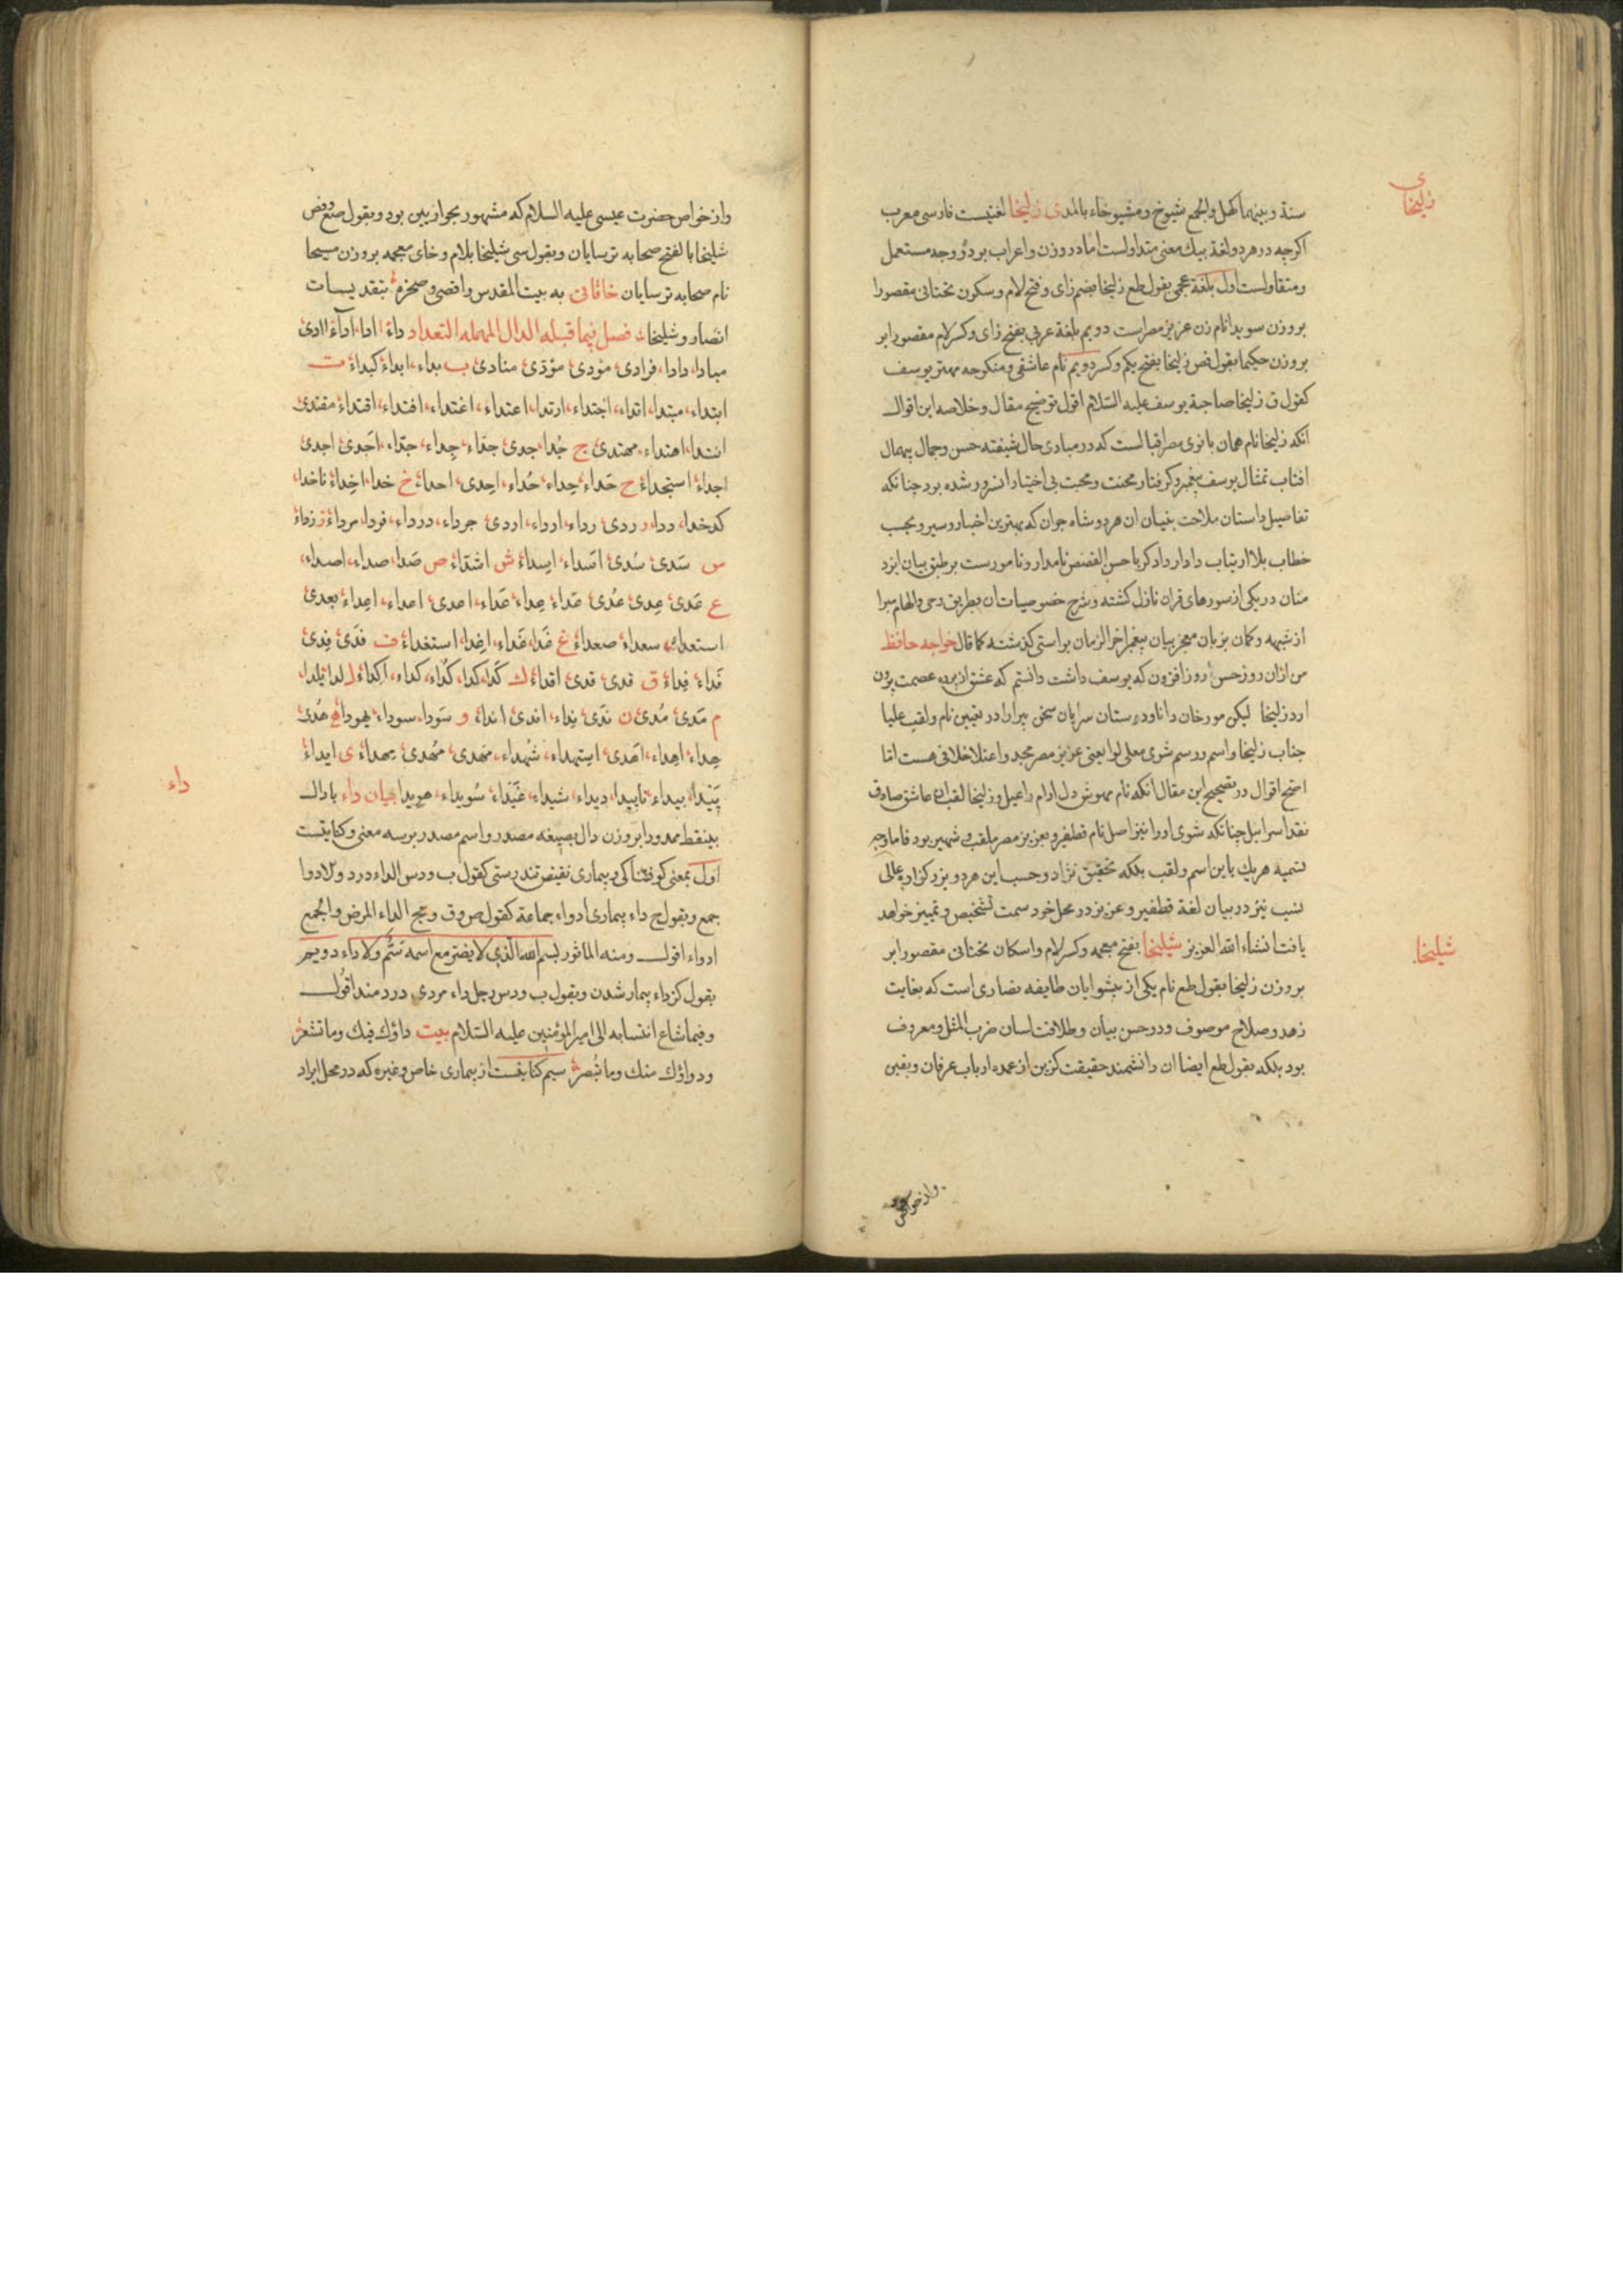 ی
زلیخا
سنة وبینهما کهل والجمع شیوخ ومشیوخاء بالمد ی زلیخا لغتیست فارسی معرب
اکرچه در هر دو لغة بیك معنی متداولست اما در وزن واعراب بر دو وجه مستعمل
ومتقاولست اول بلغة عجمی بقول طع زلیخا بضم زای وفتح لام وسکون تحتانی مقصورا
بروزن سویدا نام زن عزیز مصر است دویم بلغة عربی بفتح زای وکسر لام مقصورا بر
بروزن حکیما بقول فض زلیخا بفتح یکم وکسر دویم نام عاشقی ومنکوحه مهتر یوسف
کقول ق زلیخا صاحبة یوسف علیه السّلام اقول توضیح مقال وخلاصه این اقوال
انکه زلیخا نام همان بانوی مصر اقبالست که در مبادی حال شیفته حسن وجمال بیمال
افتاب تمثال یوسف پیغمبر وکرفتار محنت ومحبت بی اختیار انسرور شده بود چنانکه
تفاصیل داستان ملاحت بنیان ان هر دو شاه جوان که بهترین اخبار وسیر وبحسب
خطاب بلا ارتیاب دادار دادکر باحسن القصص نامدار ونامورست برطبق بیان ایزد
منان در یکی از سورهای قران نازل کشته وشرح خصوصیات ان بطریق وحی والهام مبرا
از شبهه وکمان بزبان معجز بیان پیغمبر اخر الزمان براستی کذشته کما قال خواجه حافظ
من ازان روز حسن روز افزون که یوسف داشت دانستم که عشق از پرده عصمت برون
ارد زلیخا لیکن مورخان دانا ودوستان سرایان سخن پیرا را در تعیین نام ولقب علیا
جناب زلیخا واسم ورسم شوی معلی لوا یعنی عزیز مصر مجد واعتلا خلافی هست اما
اصح اقوال در تصحیح این مقال انکه نام مهوش دل ارام راعیل وزلیخا لقب ان عاشق صادق
نقد اسرائیل چنانکه شوی او را نیز اصل نام قطفیر وبعزیز مصر ملقب وشهیر بود فاما وجه
تسمیه هر یك باین اسم ولقب بلکه تحقیق نژاد وحسب این هر دو بزرکزاد عالی
نسب نیز در بیان لغة قطفیر وعزیز در محل خود سمت تشخیص وتمییز خواهد
یافت انشاء الله العزیز شلیخا بفتح معجمه وکسر لام واسکان تحتانی مقصورا بر
شلیخا
بروزن زلیخا بقول طع نام یکی از پیشوایان طایفه نصاری است که بغایت
زهد وصلاح موصوف ودر حسن بیان وطلاقت لسان ضرب المثل ومعروف
بود بلکه بقول طع ایضا ان دانشمند حقیقت کزین از عمده ارباب عرفان ویقین
واز خواص
واز خواص حضرت عیسی علیه السلام که مشهور بحواریین بود وبقول صع وفض
شلیخا بالفتح صحابه ترسایان وبقول سی شلیخا بلام وخای معجمه بروزن مسیحا
نام صحابه ترسایان خاقانی به بیت المقدس واقصی وصخره بتقدیسات
انصار وشلیخا فصل فیما قبله الدال المهمله التعداد داء ادا، اداء اادی
مبادا، دادا، فرادی مؤدی مؤدّی منادی ب بداء، ابداء کبداء ت
ابتداء، مبتدا، اتداء، اجتداء، ارتدا، اعتداء، اغتداء، افتداء، اقتداء مقتدی
انتدا، اهتداء، مهتدی ج جُدا، جدی جَداء، جِداء، جدّاء، اَجدی اجدی
اجداء استجداء ح حَداء، حِداء، حُداء، اَحدی، احداء خ خدا، اخداء ناخدا،
کدخدا، ددا، ر ردی رداء، ارداء، اردی جرداء، درداء، فردا، مرداء ز زداء
س سَدی سُدی اسَداء، اِسداء ش اشدّاء ص صَدا، صداء، اصداء،
ع عَدی عِدی عُدی عَداء عِداء عَدّاء، اعدی اعداء، اِعداء بعدی
استعداء، سعداء صعداء غ غَدا، غَداء، اِغدا، استغداء ف فَدی فِدی
فَداء فِداء ق قدی قدی اقداء ك کَدا، کدا، کَدّاء، کداء، اَکداء ل لدا، یلدا،
م مَدی مُدی ن نَدی نِداء، اندی انداء و سَودا، سوداء یهودا ه هُدی
هِداء، اِهداء، اَهدی استهداء، شُهداء، مَهدی مُهدی مهداء ی ایداء
پَیدا، بیداء، ناپیدا، دیداء، شیداء، غَیداء سُویداء، هویدا بیان داء بادال
داء
بینقط ممدودا بروزن دال بصیغه مصدر واسم مصدر برسه معنی وکنایتست
اول بمعنی کوفتناکی وبیماری نقیض تندرستی کقول ب ودس الداء درد والادوا
جمع وبقول ج داء بیماری ادواء جماعة کقول ص وق وعج الداء المرض والجمع
ادواء اقول ومنه الماثور بسم الله الّذی لا یضر مع اسمه سَمّ ولا داء دویم
بقول کز داء بیمار شدن وبقول ب ودس رجل داء مردی دردمند اقول
وفیما شاع انتسابه الی امیر المؤمنین علیه السّلام بیت داؤك فیك وما تشعر
ودواؤك منك وما تُبصر سیم کنایتست از بیماری خاص وغیره که در محل ایراد